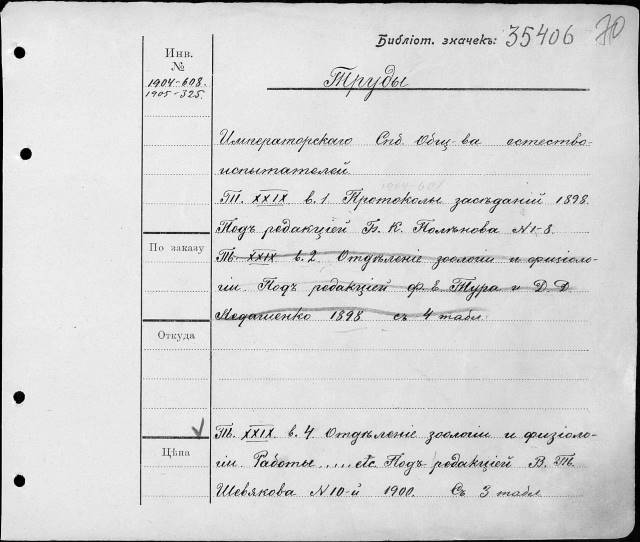 Библіот. значекъ: 35406 70
Инв.
№
1904-608.
1905-325.
Труды
Императорскаго Спб. Общ-ва естество-
испытателей
Т. XXIX в. 1 Протоколы засѣданій 1898.
Подъ редакціей Б. К. Полѣнова N 1-8.
По заказу
Т. XXIX в. 2. Отдѣленіе зоологіи и физіоло-
гіи. Подъ редакціей Ф. Е. Тура и Д. Д.
Педашенко 1898 съ 4 табл.
Откуда
Т. XXIX в. 4 Отдѣленіе зоологіи и физіоло-
Цѣна
гіи. Работы.....etc. Подъ редакціей В. Т.
Шевякова N 10-й 1900. Съ 3 табл